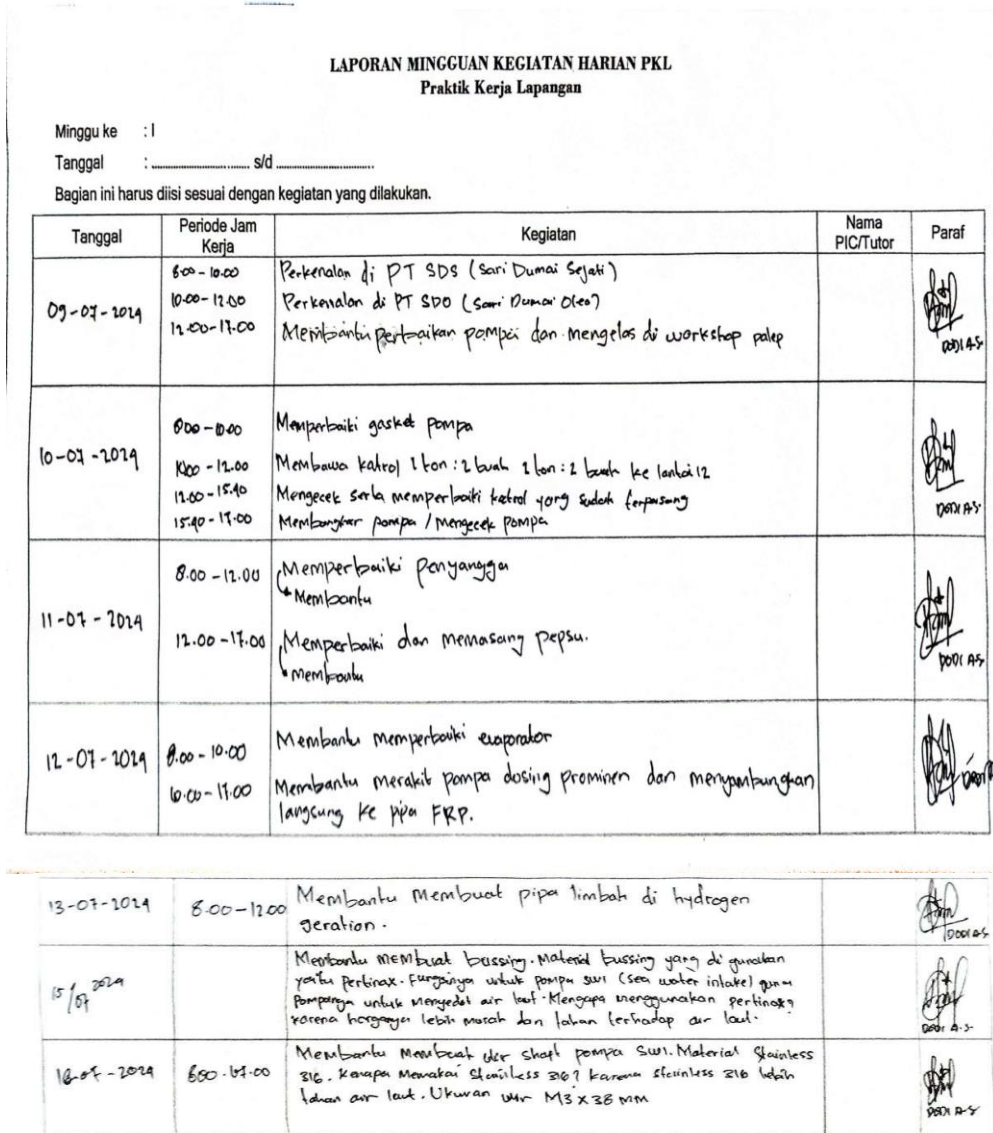 LAPORAN MINGGUAN KEGIATAN HARIAN PKL
Praktik Kerja Lapangan
Minggu ke : I
Tanggal : .............................. s/d ..............................
Bagian ini harus diisi sesuai dengan kegiatan yang dilakukan.
Tanggal Periode Jam Kerja Kegiatan Nama PIC/Tutor Paraf
09-07-2024
8.00 - 10.00 Perkenalan di PT SDS (Sari Dumai Sejati)
10.00 - 12.00 Perkenalan di PT SDO (Sari Dumai Oleo)
12.00 - 17.00 Membantu perbaikan pompa dan mengelas di workshop palep
DODI A.S.
10-07-2024
8.00 - 10.00 Memperbaiki gasket pompa
10.00 - 12.00 Membawa katrol 1 ton : 2 buah 2 ton : 2 buah ke lantai 12
12.00 - 15.40 Mengecek serta memperbaiki katrol yang sudah terpasang
15.40 - 17.00 Membongkar pompa / mengecek pompa
DODI A.S.
11-07-2024
8.00 - 12.00 Memperbaiki penyangga
Membantu
12.00 - 17.00 Memperbaiki dan memasang pepsu.
membantu
DODI A.S
12-07-2024
8.00 - 10.00 Membantu memperbaiki evaporator
10.00 - 17.00 Membantu merakit pompa dosing prominen dan menyambungkan
langsung ke pipa FRP.
13-07-2024 8.00 - 12.00 Membantu membuat pipa limbah di hydrogen
geration.
DODI A.S
15/07 2024
Membantu membuat bussing. Material bussing yang di gunakan
yaitu Pertinax. Fungsinya untuk pompa swi (sea water intake) guna
pompanya untuk menyedot air laut. Mengapa menggunakan pertinax?
karena harganya lebih murah dan tahan terhadap air laut.
DODI A.S.
16-07-2024 8.00 - 17.00
Membantu membuat ulir shaft pompa swi. Material Stainless
316. Kenapa memakai Stainless 316? Karena stainless 316 lebih
tahan air laut. Ukuran ulir M3 x 38 MM
DODI A.S